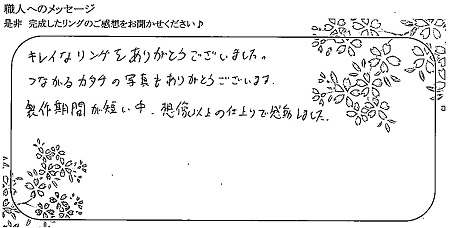 職人へのメッセージ
是非 完成したリングのご感想をお聞かせください♪
キレイなリングをありがとうございました。
つながるカタチの写真もありがとうございます。
製作期間が短い中、想像以上の仕上りで感動しました。